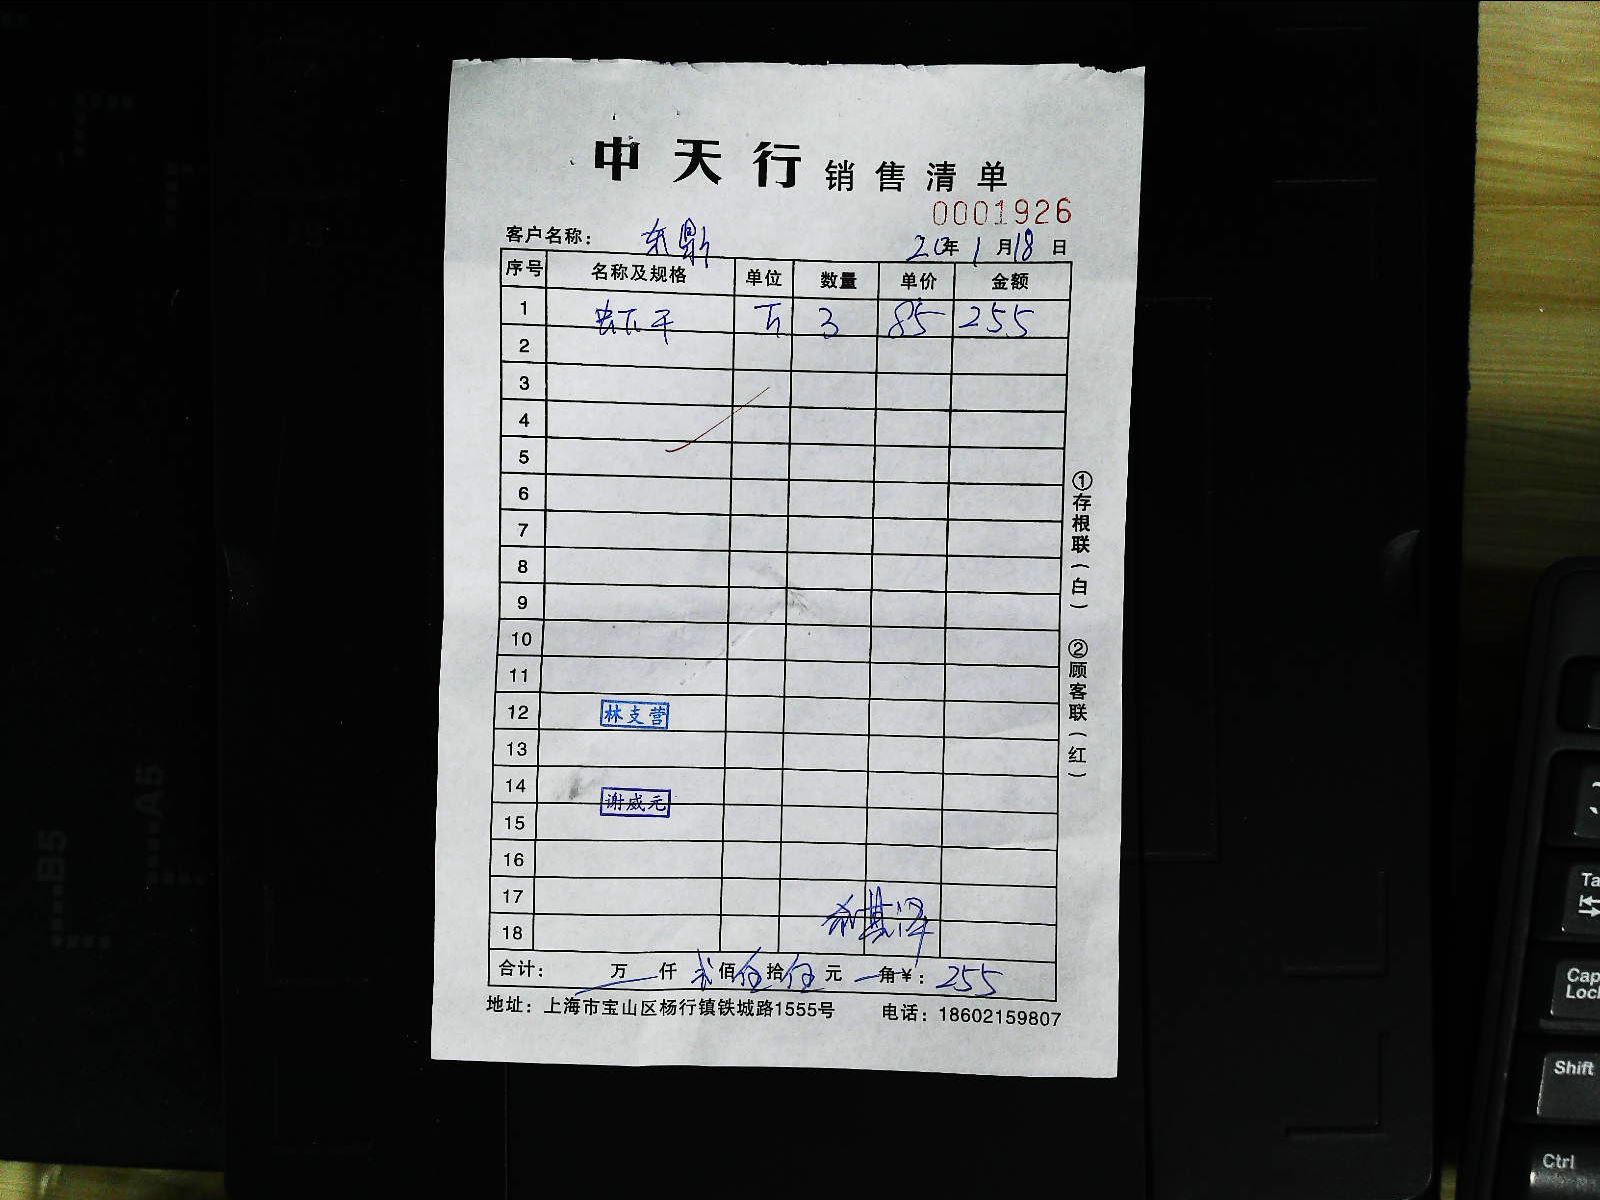 中天行销售清单
0001926
客户名称： 东鼎 20年1月18日
序号 名称及规格 单位 数量 单价 金额
1 斤 3 85 255
2
3
4
5
6
7
8
9
10
11
12 林支营
13
14
谢威元
15
16
17
18
合计： 万 仟 贰佰伍拾伍元 角¥：255
地址：上海市宝山区杨行镇铁城路1555号 电话：18602159807
①存根联（白） ②顾客联（红）
B5
A5
Ta
Cap
Loc
Shift
Ctrl